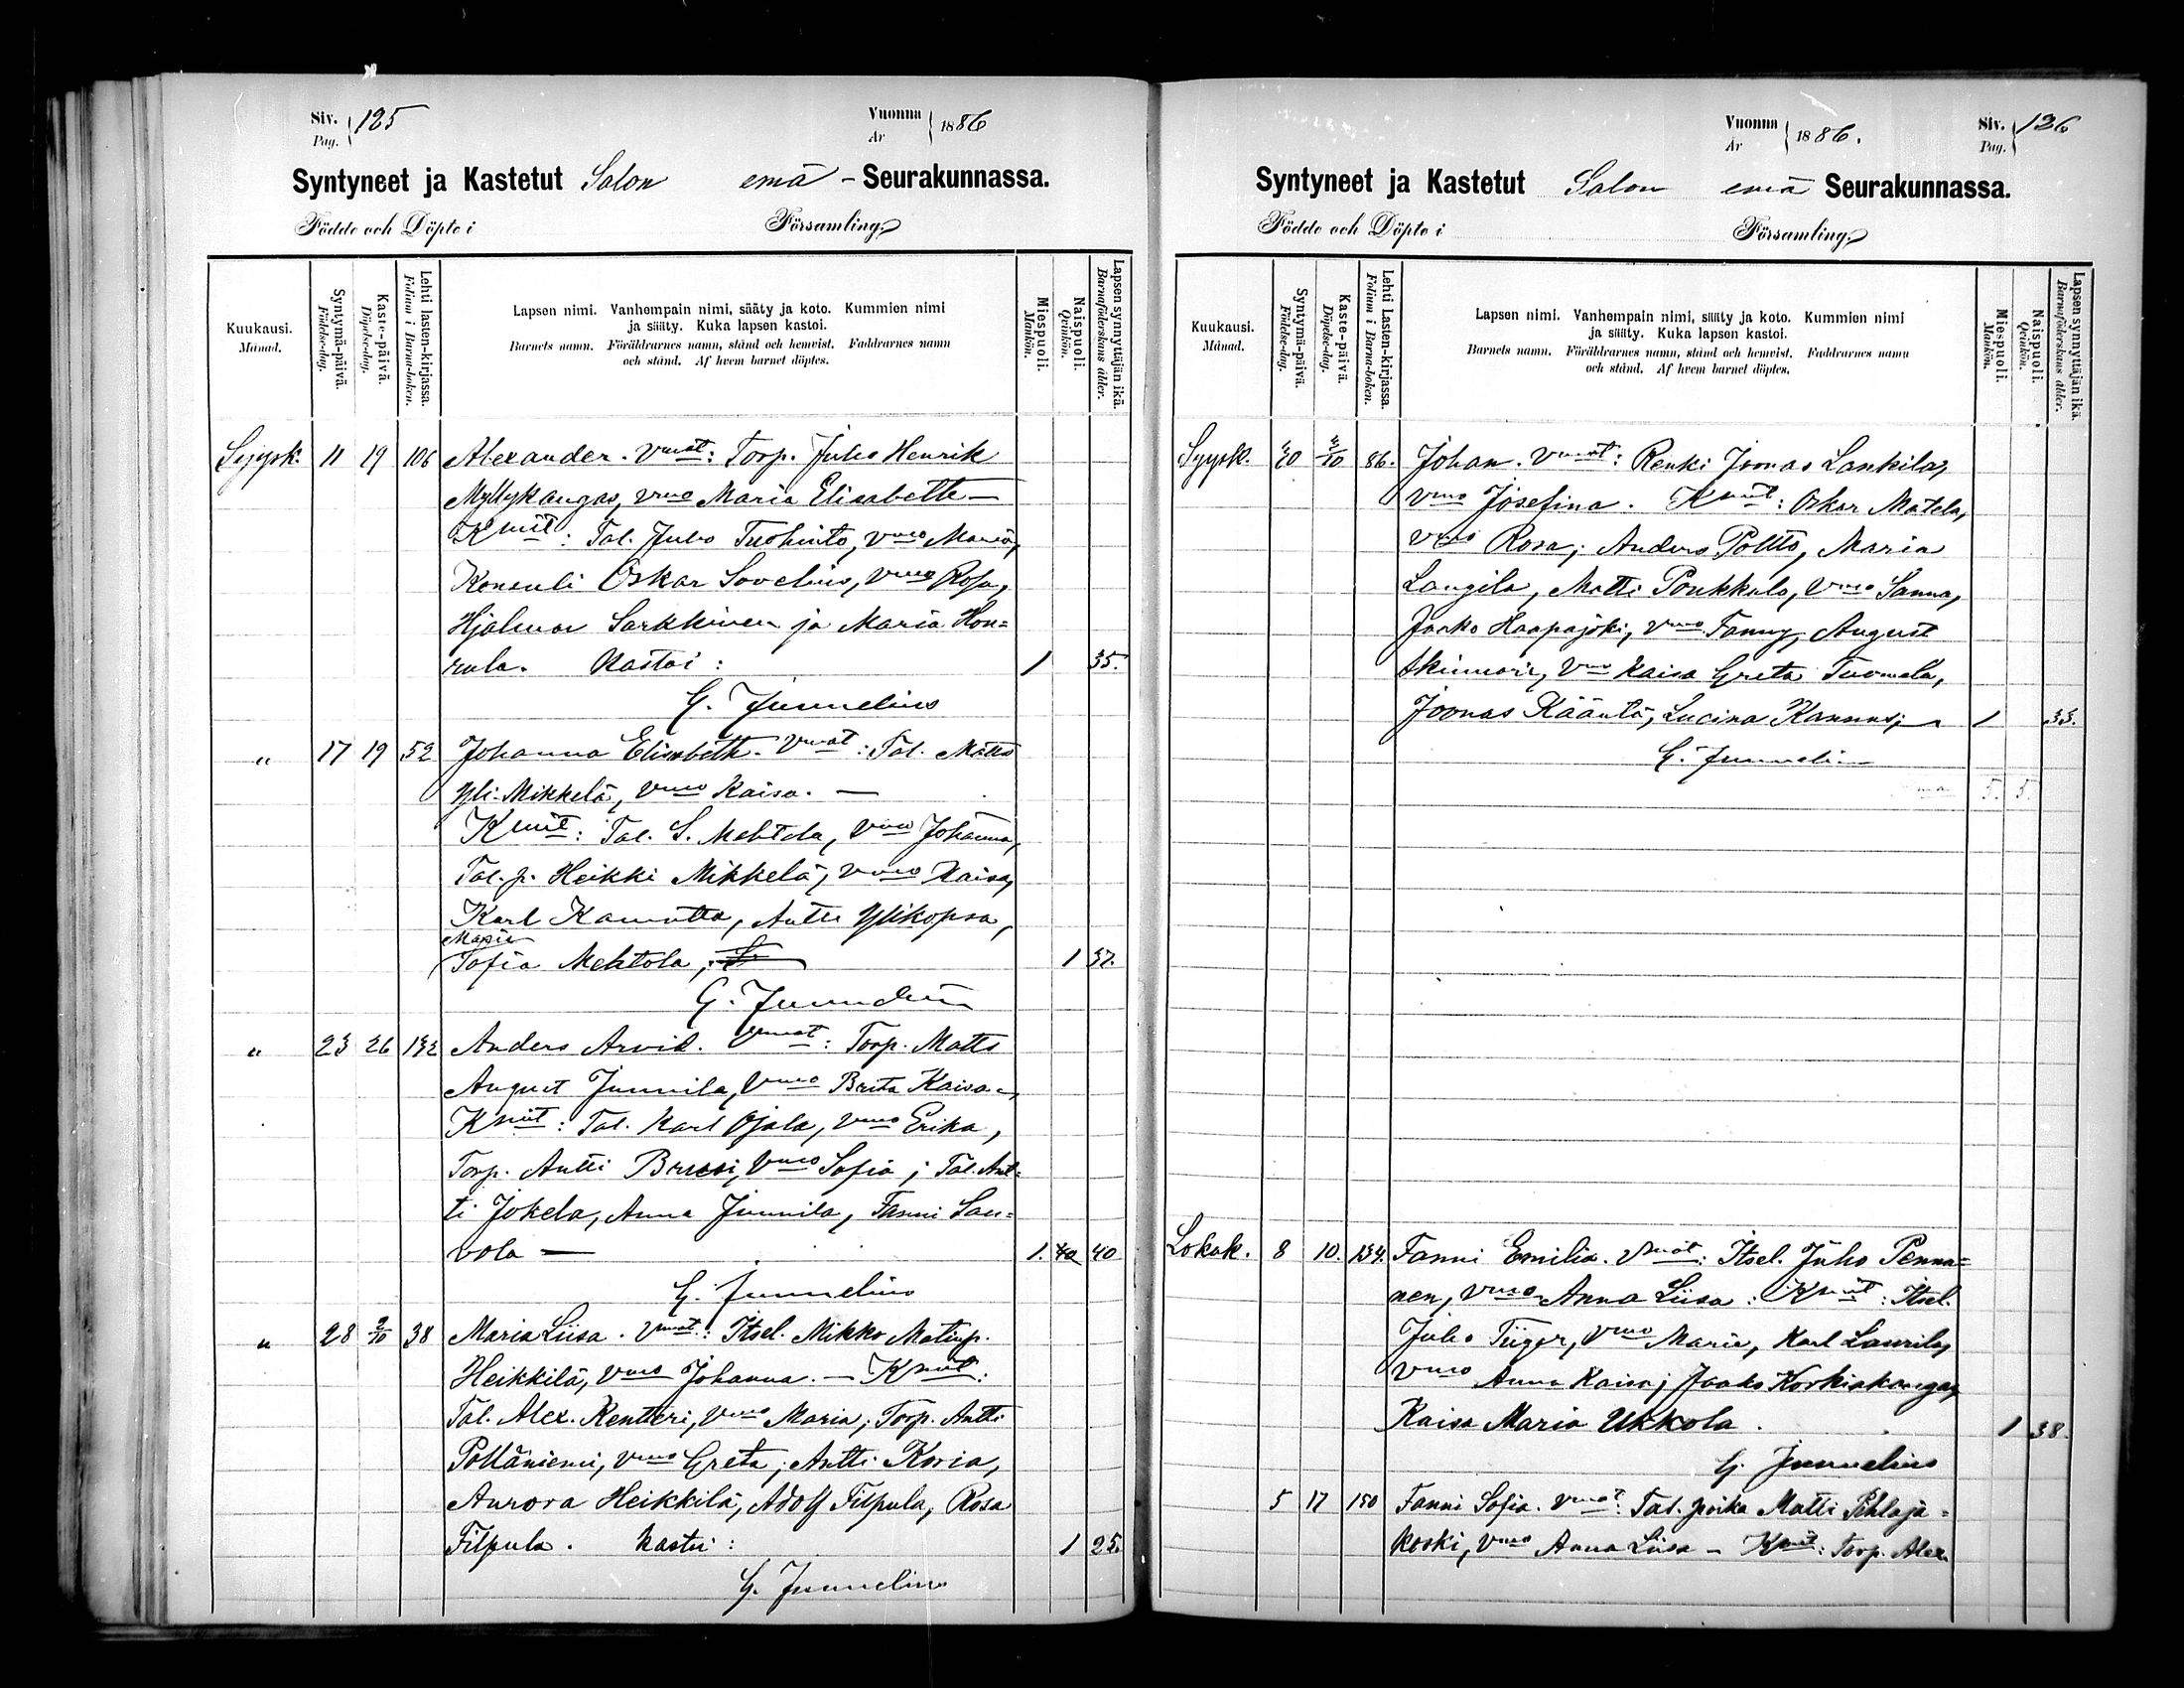 Siv. Pag. 125
Vuonna År 1886
Syntyneet ja Kastetut Salon emä - Seurakunnassa.
Födde och Döpte i Församling.
Kuukausi. Månad.
Syntymä-päivä. Födelse-dag.
Kaste-päivä. Döpelse-dag.
Lehti lasten-kirjassa. Folium i Barna-boken.
Lapsen nimi. Vanhempain nimi, sääty ja koto. Kummien nimi
ja sääty. Kuka lapsen kastoi.
Barnets namn. Föräldrarnes namn, stånd och hemvist. Faddrarnes namn
och stånd. Af hvem barnet döptes.
Miespuoli. Mankön.
Naispuoli. Qvinkön.
Lapsen synnyttäjän ikä. Barnaföderskans ålder.
Syysk. 11 19 106 Alexander. Vmat: Torp. Juho Henrik
Myllykangas, vmo Maria Elisabeth —
Kmit: Tal. Juho Tuohinto, vmo Maria,
Konsuli Oskar Sovelius, vmo Rosa,
Hjalmar Sarkkinen ja Maria Hon=
rula. Kastoi: 1 35.
G. Junnelius
" 17 19 52 Johanna Elisabeth. Vmat: Tal. Matts
Yli-Mikkelä, vmo Kaisa. —
Kmit: Tal. S. Mehtola, vmo Johanna,
Tal. p. Heikki Mikkelä, vmo Kaisa,
Karl Kamutta, Antti Ylikopsa,
Maria
Sofia Mehtola, 1 37.
G. Junnelius
" 23 26 132 Anders Arvid. Vmat: Torp. Matts
August Junnila, vmo Brita Kaisa –
Kmit: Tal. Karl Ojala, vmo Erika,
Torp. Antti Bruusi, vmo Sofia; Tal. Ant=
ti Jokela, Anna Junnila, Fanni Sau=
vola — 1. 40 40
G. Junnelius
" 28 2/10 38 Maria Liisa. Vmat: Itsel. Mikko Matinp.
Heikkilä, vmo Johanna. — Kmit:
Tal. Alex. Rentteri, vmo Maria; Torp. Antti
Polläniemi, vmo Greta; Antti Koria,
Aurora Heikkilä, Adolf Filpula, Rosa
Filpula. Kastoi: 1 25.
G. Junnelius
Vuonna År 1886.
Siv. Pag. 126
Syntyneet ja Kastetut Salon emä Seurakunnassa.
Födde och Döpte i Församling.
Kuukausi. Månad.
Syntymä-päivä. Födelse-dag.
Kaste-päivä. Döpelse-dag.
Lehti Lasten-kirjassa. Folium i Barna-boken.
Lapsen nimi. Vanhempain nimi, sääty ja koto. Kummien nimi
ja sääty. Kuka lapsen kastoi.
Barnets namn. Föräldrarnes namn, stånd och hemvist. Faddrarnes namn
och stånd. Af hvem barnet döptes.
Miespuoli. Mankön.
Naispuoli. Qvinkön.
Lapsen synnyttäjän ikä. Barnaföderskans ålder.
Syysk. 86. Johan. Vmat: Renki Joonas Lankila,
vmo Josefina. Kmit: Oskar Matela,
vmo Rosa; Anders Poltto, Maria
Langila, Matti Poukkula, vmo Sanna,
Jaako Haapajoki, vmo Fanny, August
vmo Kaisa Greta Tuomela,
Joonas Rääntä, Lucina Kannus; 1 35.
G. Junnelius
5. 5.
Lokak. 8 10. 134. Fanni Emilia. Vmat: Itsel. Juho Penna=
nen, vmo Anna Liisa: Kmit: Itsel.
Juho Tiiger, vmo Maria, Karl Laurila,
vmo Anna Kaisa; Jaako Korkiakangas,
Kaisa Maria Ukkola. 1 38.
G. Junnelius
5 17 150 Fanni Sofia. Vmat: Tal. poika Matti Pihlaja=
koski, vmo Anna Liisa – Kmit: Torp. Alex.